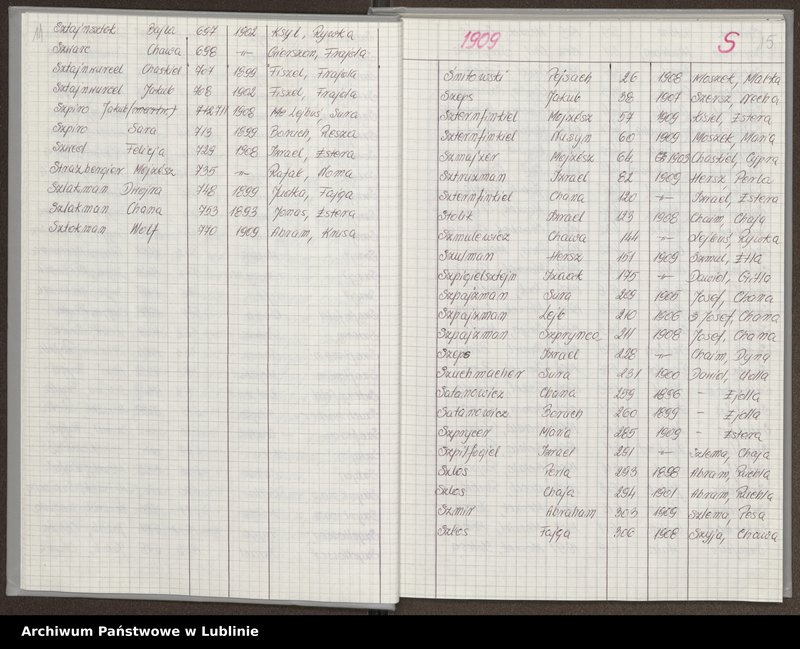 Sztajnsztok Bajla 697 1902 Ksyl, Rywka
Szwarc Chawa 698 -"- Gierszon, Frajda
Sztajnwurcel Chaskiel 707 1899 Fiszel, Frajda
Sztajnwurcel Jakub 708 1902 Fiszel, Frajda
Szpiro Jakub 1908 Lejbuś, Sura
Szpiro Sara 713 1899 Boruch, Reszka
Szwed Felicja 729 1908 Izrael, Estera
Strazbergier Mojżesz 735 -"- Rafał, Noma
Szlakman Dwojra 748 1899 Judka, Fajga
Szlakman Chana 753 1893 Jonas, Estera
Sztokman Wolf 770 1909 Abram, Krusa
1909 S 15
Śnitowski Pejsach 26 1908 Moszek, Malka
Szeps Jakub 38 1907 Szensz, Necha
Szternfinkiel Mojżesz 57 1909 Jósiel, Estera
Szternfinkiel Nusyn 60 1909 Moszek, Maria
Szmajzer Mojżesz 64 1909 Chaskiel, Cypra
Sztruzman Izrael 82 1909 Hersz, Perla
Szternfinkiel Chana 120 -"- Izrael, Estera
Stolik Izrael 123 1908 Chaim, Chaja
Szmulewicz Chawa 144 -"- Lejbuś, Rywka
Szulman Hersz 151 1909 Szmul, Etla
Szpigielsztejn Izaack 175 -"- Dawid, Gitla
Szpajzman Sura 209 1905 Josef, Chana
Szpajzman Lejb 210 1906 Josef Chana
Szpajzman Szprynca 211 1908 Josef, Chana
Szeps Izrael 228 -"- Chaim, Dyna
Szuchmacher Sura 231 1900 Dawid, Udla
Satanowicz Chana 259 1896 - Ejdla
Satanowicz Boruch 260 1899 - Ejdla
Szprycer Maria 285 1909 - Estera
Szpilfogiel Izrael 291 -"- Szlema, Chaja
Szlos Perla 293 1898 Abram, Ruchla
Szlos Chaja 294 1901 Abram, Ruchla
Szmir Abraham 303 1909 Szlema, Pesa
Szlos Fajga 306 1908 Szyja, Chawa
Archiwum Państwowe w Lublinie